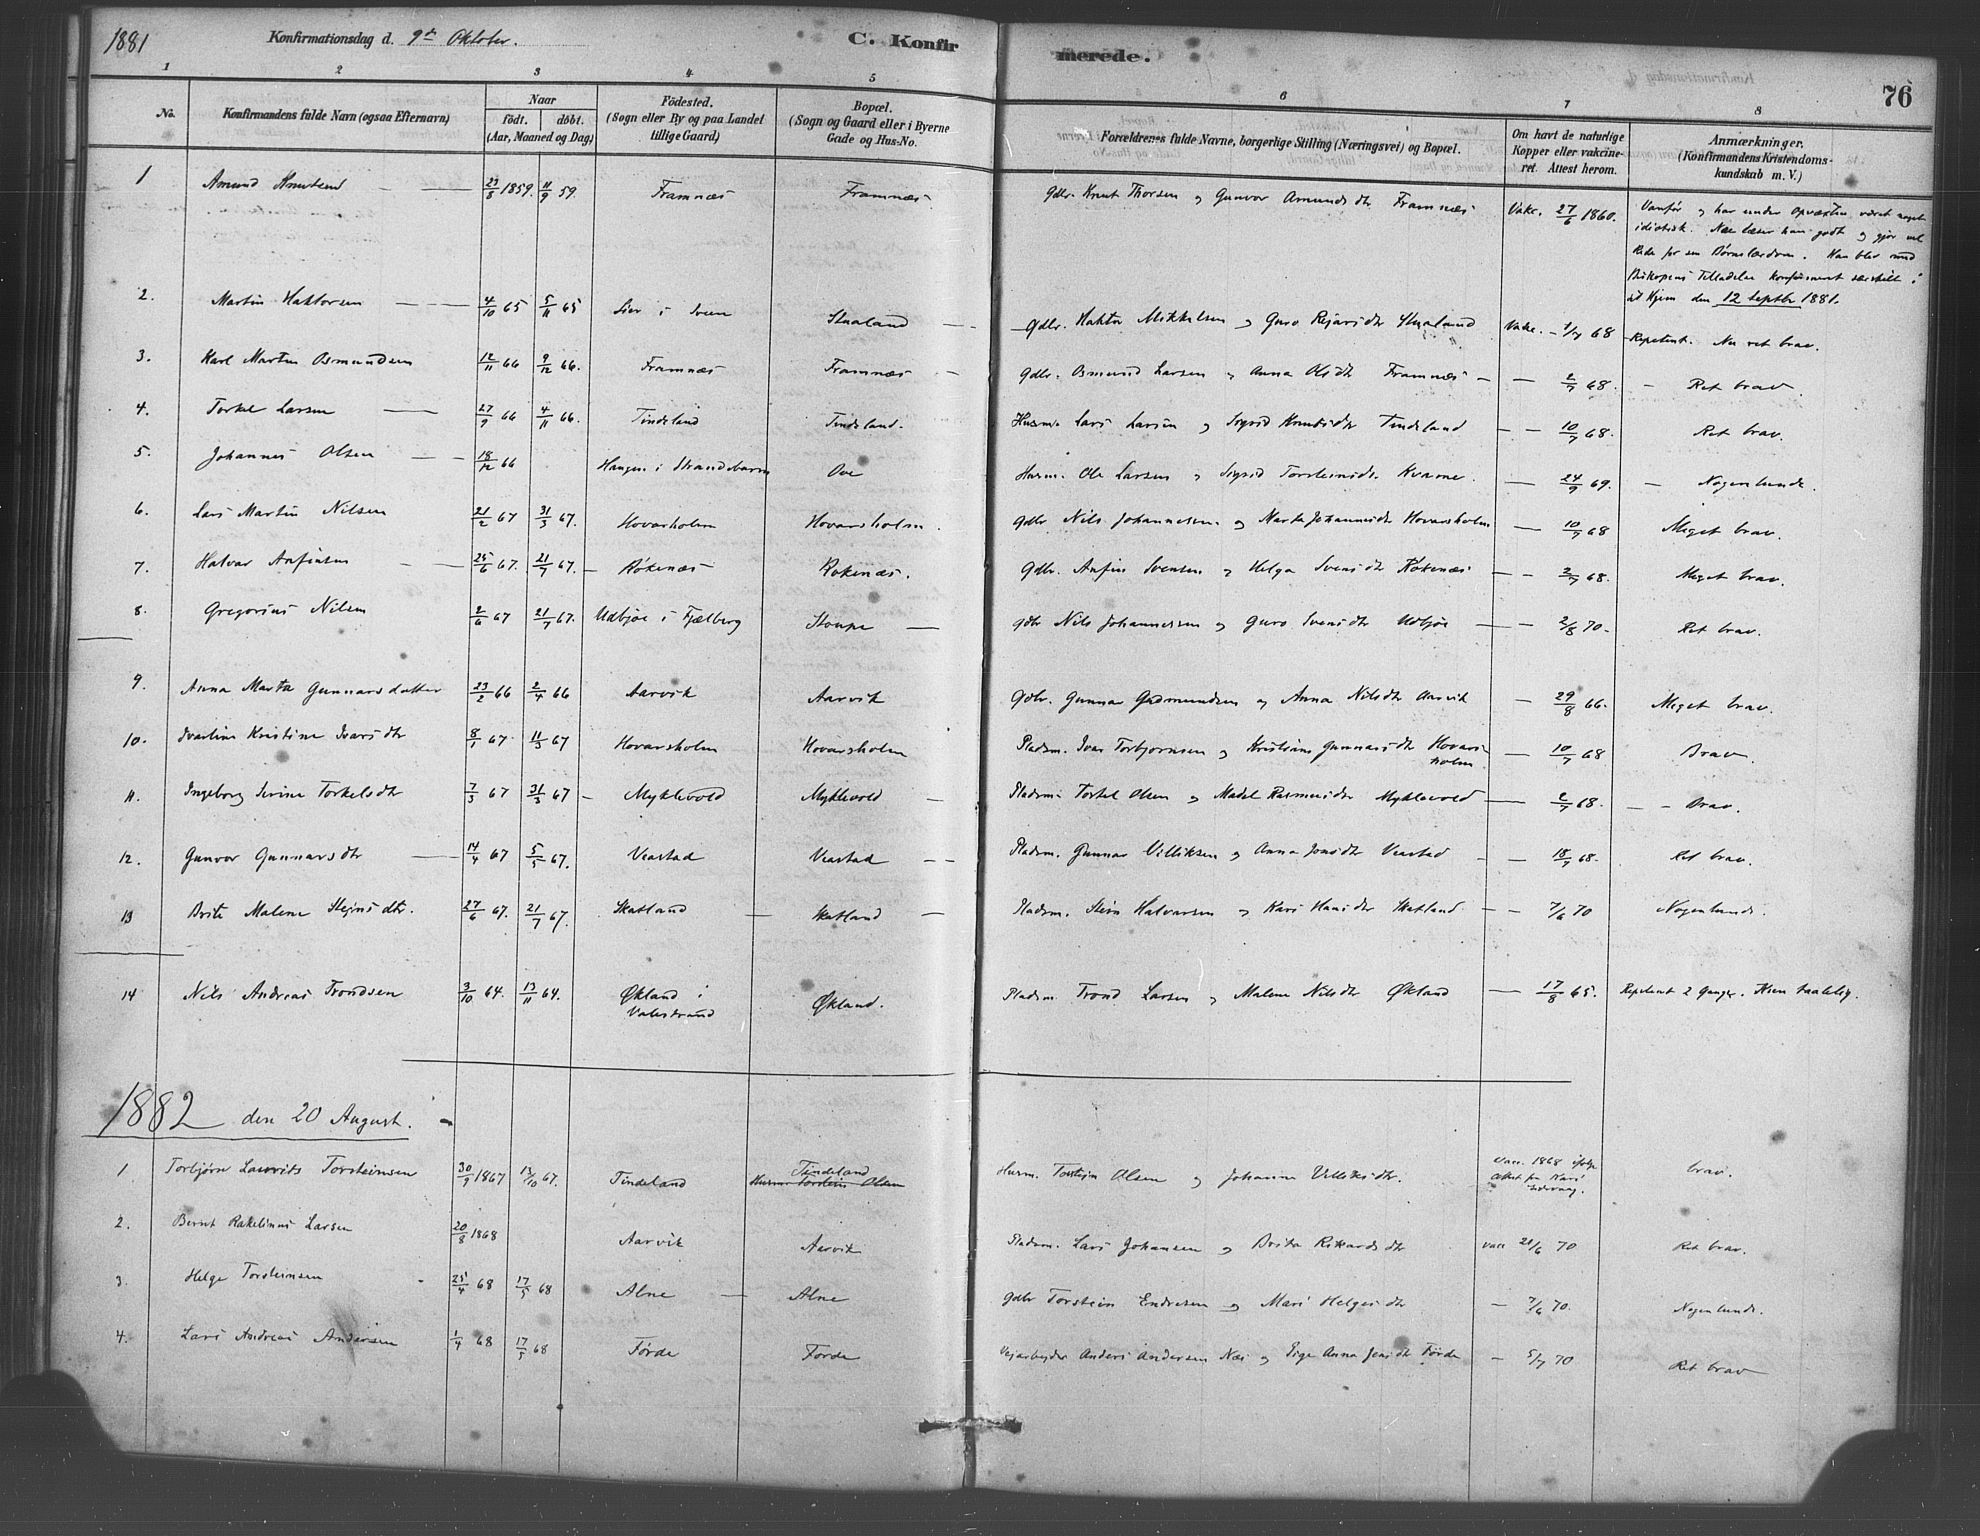 1881 Konfirmationsdag d. 9de Oktober. C. Konfirmerede. 76
1 2 3 4 5 6 7 8
No. Konfirmandens fulde Navn (ogsaa Efternavn) Naar født. døbt. (Aar, Maaned og Dag) Födested. (Sogn eller By og paa Landet tillige Gaard) Bopæl. (Sogn og Gaard eller i Byerne Gade og Hus-No. Forældrenes fulde Navne, borgerlige Stilling (Næringsvei) og Bopæl. Om havt de naturlige Kopper eller vakcineret. Attest herom. Anmærkninger. (Konfirmandens Kristendomskundskab m. V.)
1 Amund Knutsen 23/8 1859. 11/9 59. Framnæs Framnæs. Gdbr. Knut Thorsen og Gunvor Amundsdtr Framnæs Vakc. 27/6 1860. Vanfør og har under Opvæxten været noget
idiotisk. Nu læser han godt og gjør vel
Rede for sin Børnelærdom. Han blev med
Biskopens Tilladelse konfirmeret særskilt i
sit Hjem den 12 Septbr 1881.
2. Martin Haktorsen 4/10 65 5/11 65 Lier i Sveen Stualand Gdbr. Haktor Mikkelsen og Guro Rejarsdtr Stualand Vakc. 68 Repetent. Nu ret brav.
3. Karl Martin Osmundsen 12/11 66 9/12 66. Framnæs Framnæs Gdbr. Osmund Larsen og Anna Olsdtr Framnæs 2/7 68. Ret brav.
4. Torkel Larsen 27/9 66 4/11 66. Tindeland Tindeland. Husm. Lars Larsen og Sigrid Knutsdtr Tindeland 10/7 68. Ret brav.
5. Johannes Olsen 18/12 66 Haugen i Strandebarm Ove Husm. Ole Larsen og Sigrid Torsteinsdtr Kvarne. 24/9 69. Nogenlunde.
6. Lars Martin Nilsen 21/2 67 31/3 67. Hovarsholm Hovarsholm. Gdbr Nils Johannesen og Marta Johannesdtr Hovarsholm 10/7 68 Meget brav.
7. Halvor Anfinsen 25/6 67. 21/7 67. Røkenæs Røkenæs. Gdbr. Anfin Svensen og Helga Svensdtr Røkenæs 2/7 68. Meget brav.
8. Gregorius Nilsen 2/6 67 21/7 67. Udbjøe i Fjelberg Stoupe Gdbr Nils Johannesen og Guro Svensdtr Udbjøe 2/8 70. Ret brav.
9. Anna Marta Gunnarsdatter 23/2 66 2/4 66 Aarvik Aarvik Gdbr. Gunnar Gudmundsen og Anna Nilsdtr Aarvik 29/8 66. Meget brav.
10. Ivarline Kristine Ivarsdtr 8/1 67. 11/3 67 Hovarsholm Hovarsholm Pladsm. Ivar Torbjørnsen og Kristiane Gunnarsdtr Hovarsholm 10/7 68 Brav.
11. Ingeborg Serine Torkelsdtr 7/3 67 31/3 67 Myklevold Myklevold Pladsm. Torkel Olsen og Madel Rasmusdtr Myklevold 2/7 68. Brav.
12. Gunvor Gunnarsdtr 14/4 67 5/5 67. Veastad Veastad Pladsm. Gunnar Villiksen og Anna Jonsdtr Veastad 18/7 68. Ret brav.
13 Brita Malene Steinsdtr. 27/6 67. 21/7 67. Skatland Skatland Pladsm. Stein Halvorsen og Kari Hansdtr Skatland 7/6 70 Nogenlunde.
14 Nils Andreas Trondsen 3/10 64. 13/11 64. Økland i Valestrand Økland. Pladsm. Trond Larsen og Malene Nilsdtr Økland 17/8 65. Repetent 2 Ganger. Kun taalelig.
1882 den 20 August.
1 Torbjørn Lauvits Torsteinsen 30/9 1867 13/10 67. Tindeland Tindeland Husm. Torstein Olsen Husm. Torstein Olsen og Johanna Villiksdtr. vacc. 1868 ifølge Attest fra brav.
2. Bernt Rakelinus Larsen 20/8 1868 Aarvik Aarvik Pladsm. Lars Johansen og Brita Rikardsdtr vacc 21/6 70 Ret brav.
3. Helge Torsteinsen 25/4 68 17/5 68 Alne Alne Gdbr Torstein Endresen og Mari Helgesdtr 7/6 70. Nogenlunde.
4. Lars Andreas Andersen 1/4 68 17/5 68 Førde Førde Vejarbejder Anders Andersen Næs og Pige Anna Jensdtr Førde 5/7 70 Ret brav